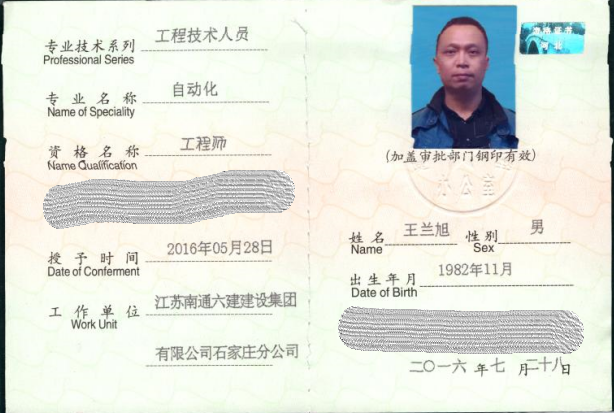 专业技术系列 工程技术人员
Professional Series
专业名称 自动化
Name of Speciality
资格名称 工程师
Name Qualification
授予时间 2016年05月28日
Date of Conferment
工作单位 江苏南通六建建设集团
Work Unit
有限公司石家庄分公司
资格证书
河北
(加盖审批部门钢印有效)
办公室
姓名 王兰旭 性别 男
Name Sex
出生年月 1982年11月
Date of Birth
二〇一六年七月二十八日